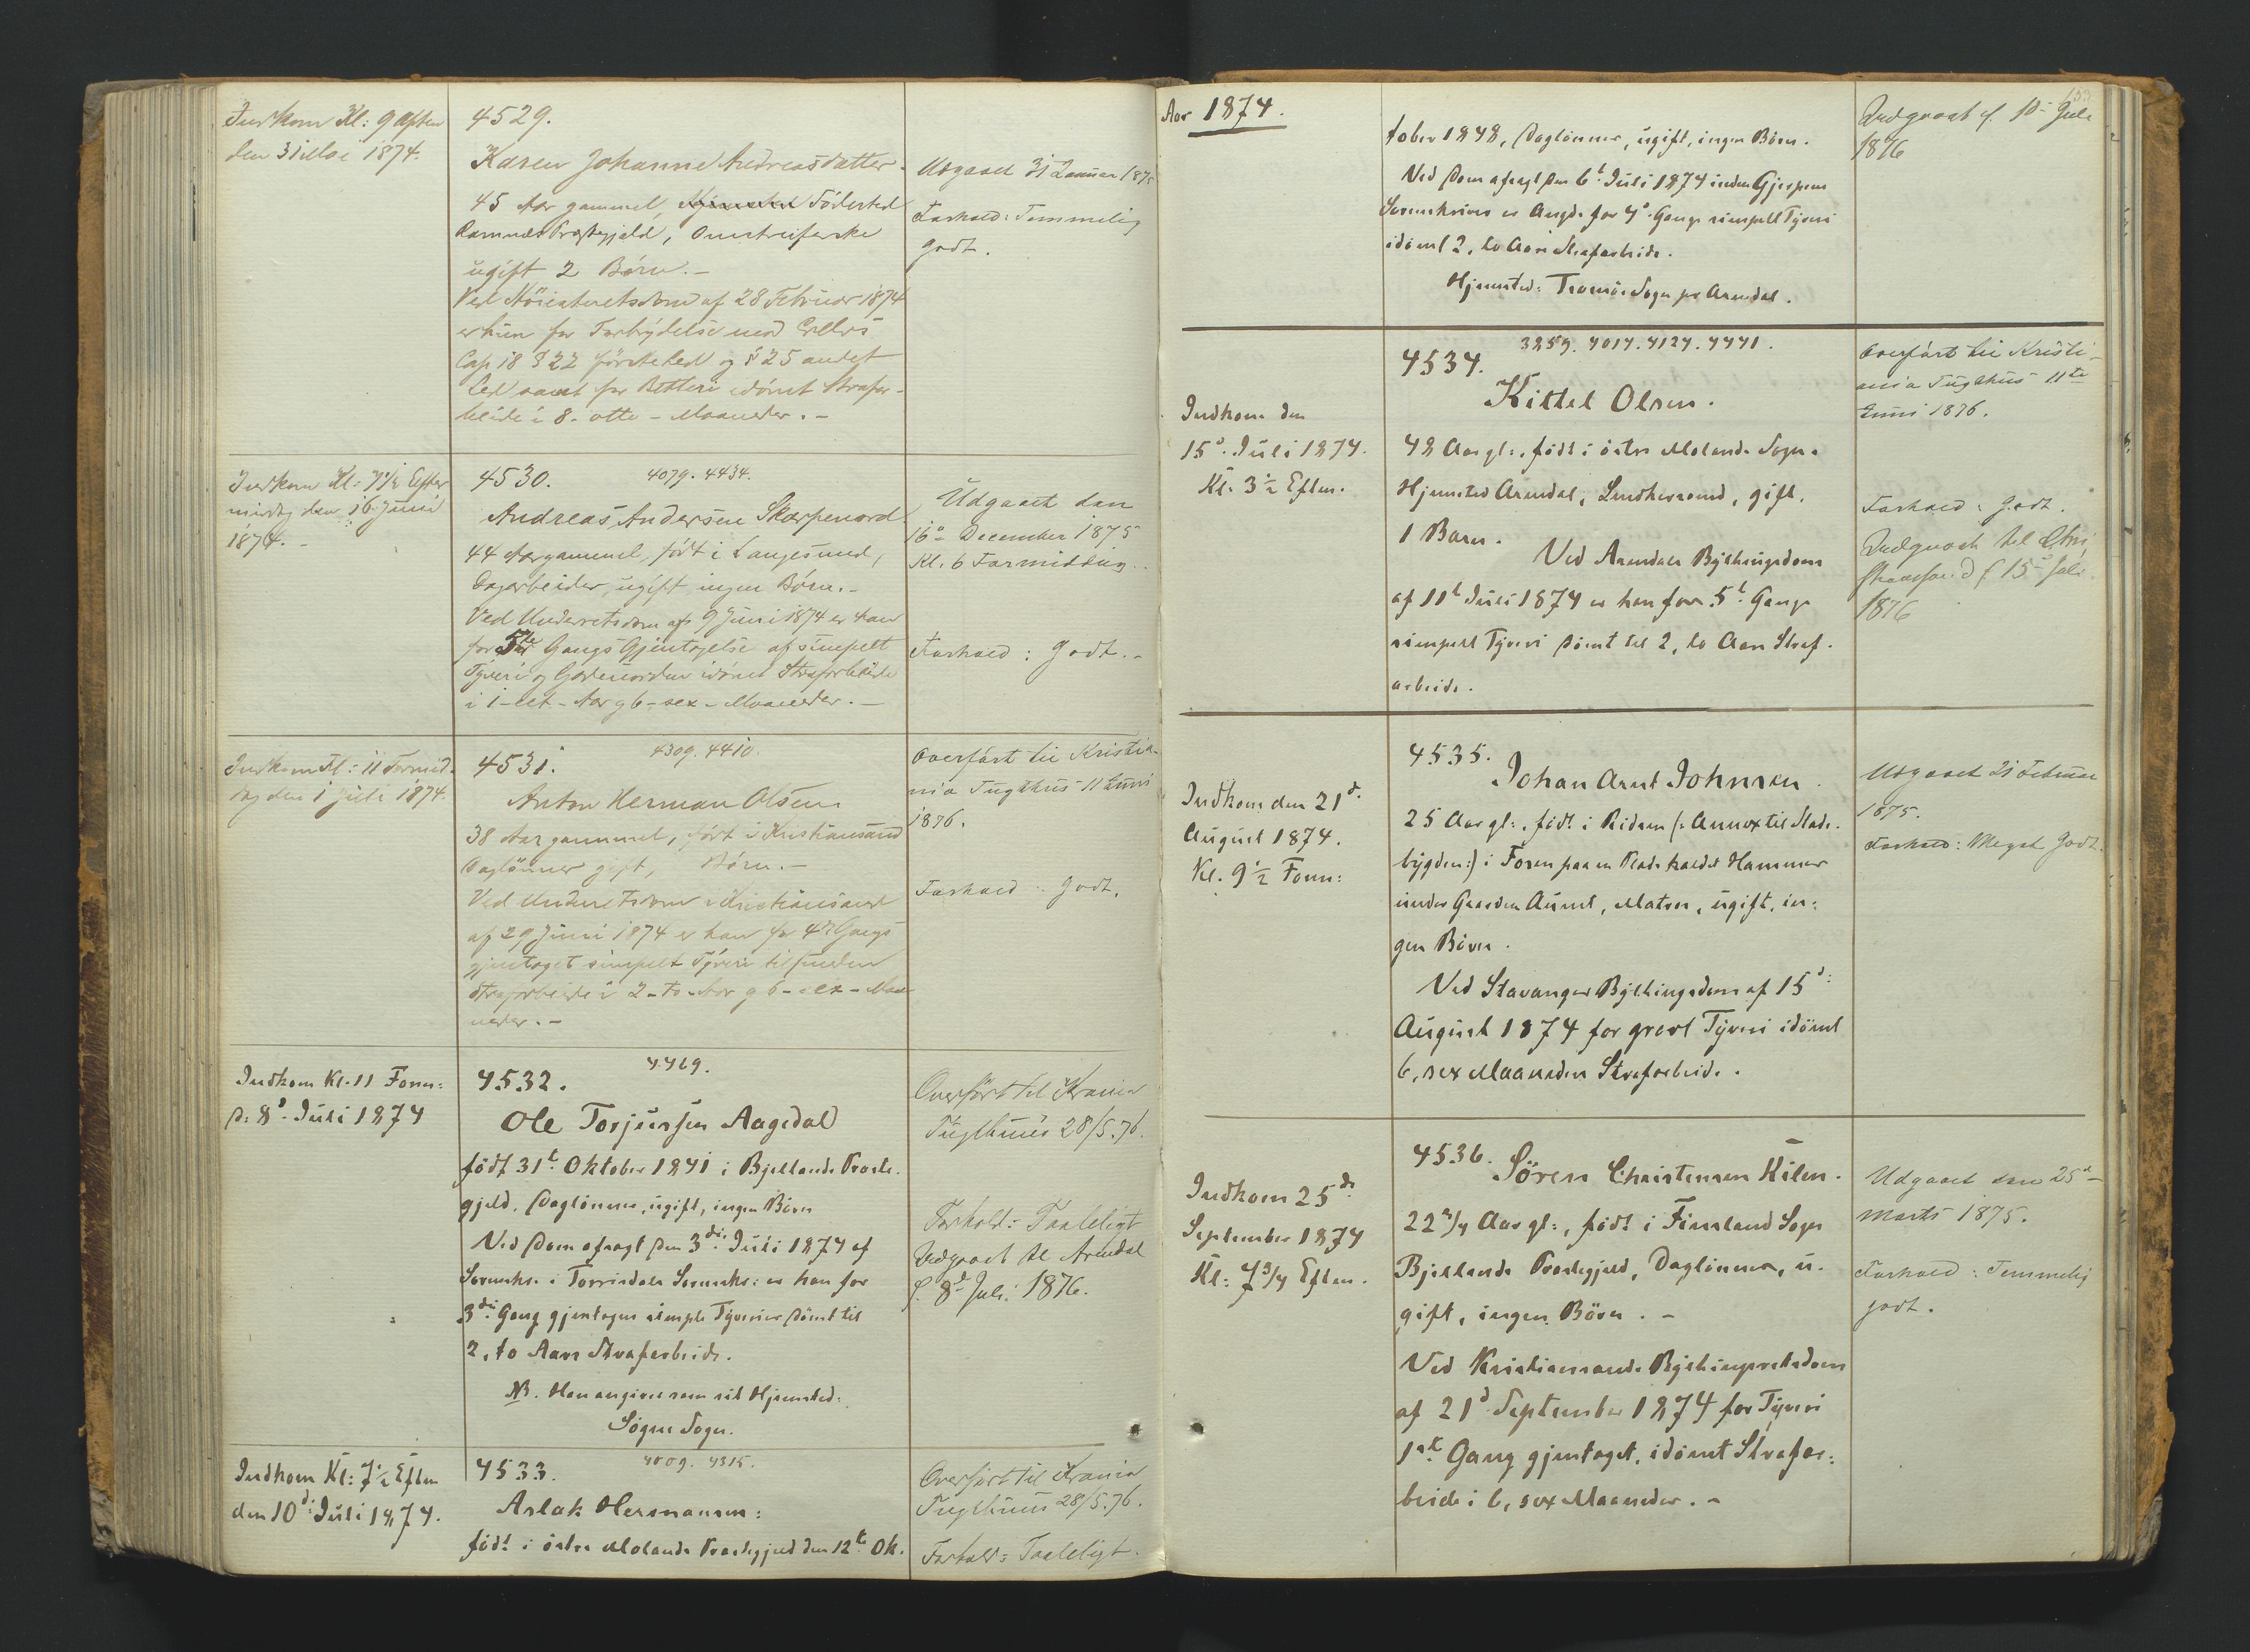 Indkom Kl: 9 Aften
den 31 Mai 1874.
4529.
Karen Johanne Andreasdatter.
45 Aar gammel, Födested
Ramnæs Præstegjeld, Omstreiferske
ugift 2 Börn. -
Ved Höiesteretsdom af 28 Februar 1874
er hun for Forbrydelse mod Crllvs
Cap 18 § 22 förste Led og § 25 andet
Led samt for Betleri idömt Strafar-
beide i 8 - otte - Maaneder. -
Udgaaet 31 Januar 1875
Forhold: Temmelig
godt.
Indkom Kl: 7 1/2 Efter
middg den 16 Juni
1874. -
4530. 4079. 4434.
Andreas Andersen Skarpenord
44 Aar gammel, født i Langesund,
Dagarbeider, ugift ingen Börn. -
Ved Underretsdom af 9 Juni 1874 er han
for 5te Gangs Gjentagelse af simpelt
Tyveri og Gadeuorden idömt Strafarbeide
i 1 - et - Aar og 6 - sex - Maaneder. -
Udgaaet den
16de December 1875
Kl. 6 Formiddag.
Forhold: Godt. -
Indkom Kl: 11 Formid-
dag den 1 Juli 1874.
4531. 4309. 4410.
Anton Herman Olsen
38 Aar gammel, født i Kristiansand
Daglönner gift, Börn. -
Ved Underretsdom i Kristiansand
af 29 Juni 1874 er han for 4de Gangs
gjentaget simpelt Tyveri tilfunden
Strafarbeide i 2 - to - Aar og 6 - sex - Maa
neder. -
Overfört til Kristia-
nia Tugthus 11 Juni
1876.
Forhold: Godt.
Indkom Kl. 11 Form:
d: 8d. Juli 1874
4532. 4469.
Ole Torjussen Aagedal
födt 31t Oktober 1841 i Bjellands Præste-
gjeld, Daglönner, ugift, ingen Börn
Ved Dom afsagt den 3die Juli 1874 af
Sorenskr. i Torrisdals Sorenskr: er han for
3die Gang gjentagen simple Tyverier dömt til
2, to Aars Strafarbeide.
NB. Han angiver som sit Hjemsted:
Sögne Sogn.
Overfört til Krania
Tugthuus 28/5.76.
Forhold: Taaleligt
Udgaaet til Arendal
f. 8d Juli 1876.
Indkom Kl: 7 1/2 Eftm
den 10d: Juli 1874.
4533. 4009. 4315.
Aslak Hermansen:
född i östre Molands Præstegjeld den 12t Ok-
Overfört til Krania
Tugthuus 28/5.76.
Forhold: Taaleligt.
Aar 1874.
153
tober 1848, Daglönner, ugift, ingen Börn.
Ved Dom afsagt den 6t Juli 1874 inden Gjerpens
Sorenskriveri er Angd. for 4d Gangs simpelt Tyveri
idömt 2, to Aars Strafarbeide.
Hjemsted: Tromö Sogn pr Arendal.
Udgaaet f. 10 Juli
1876
Indkom den
15d. Juli 1874.
Kl. 3 1/2 Eftm.
3259. 4017. 4124. 4441.
4534.
Kittel Olsen.
48 Aar gl:, født i östre Molands Sogn.
Hjemsted Arendal, gift.
1 Barn.
Ved Arendals Bythingsdom
af 11t Juli 1874 er han for 5t Gangs
simpelt Tyveri dömt til 2, to Aars Straf-
arbeide.
Overfört til Kristi-
ania Tugthus 11te
Juni 1876.
Forhold: Godt.
Udgaaet til
15 Juli
1876
Indkom den 21d.
August 1874.
Kl. 9 1/2 Form:
4535.
Johan Arnt Johnsen.
25 Aar gl:, född i Ridsem (: Annex til Stads-
bygden:) i Fosen paa en Plads kaldet Hammer
under Gaarden Aunet, Matros, ugift, in-
gen Börn.
Ved Stavanger Bythingsdom af 15d:
August 1874 for grovt Tyveri idömt
6, sex Maaneders Strafarbeide.
Udgaaet 21 Februar
1875.
Forhold: Meget Godt.
Indkom 25de
September 1874
Kl: 7 3/4 Eftm.
4536.
Sören Christensen Kilen.
22 3/4 Aar gl:, född i Finsland Sogn
Bjellands Præstegjeld, Daglönner, u-
gift, ingen Börn. -
Ved Kristiansands Bythingsretsdom
af 21d September 1874 for Tyveri
1ste Gang gjentaget, idömt Strafar-
beide i 6, sex Maaneder. -
Udgaaet den 25de
Marts 1875.
Forhold: Temmelig
godt.